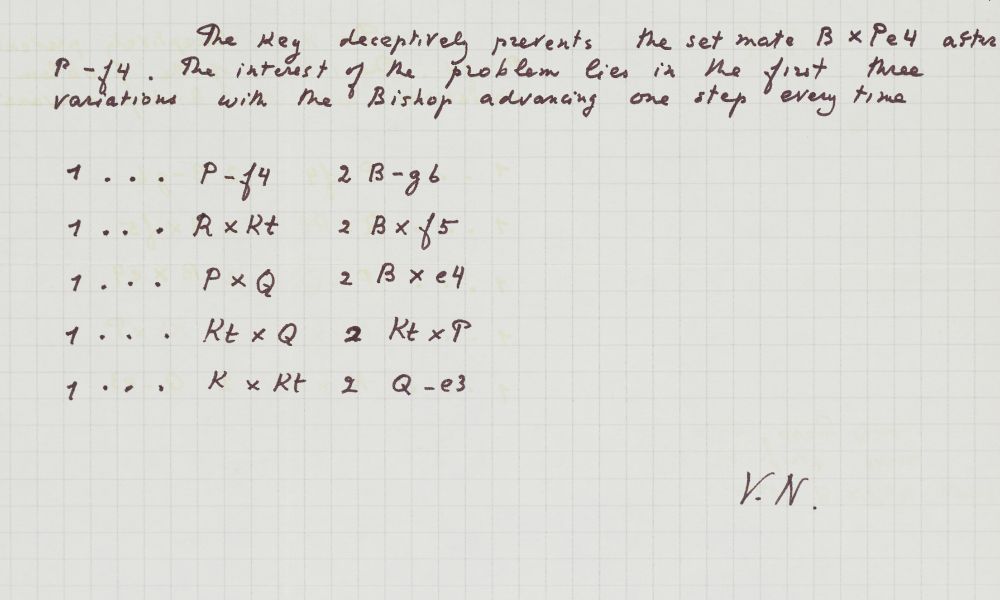 The key deceptively prevents the set mate B × Pe4 after
P - f4. The interest of the problem lies in the first three
variations with the Bishop advancing one step every time
1 . . . P - f4 2 B - g6
1 . . . R × Kt 2 B × f5
1 . . . P × Q 2 B × e4
1 . . . Kt × Q 2 Kt × P
1 . . . K × Kt 2 Q - e3
V. N.